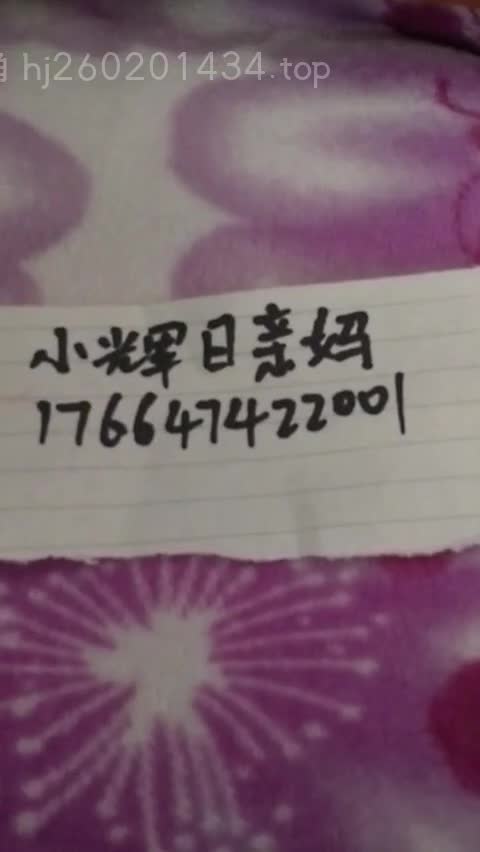 hj260201434.top
小辉日亲妈
176647422001